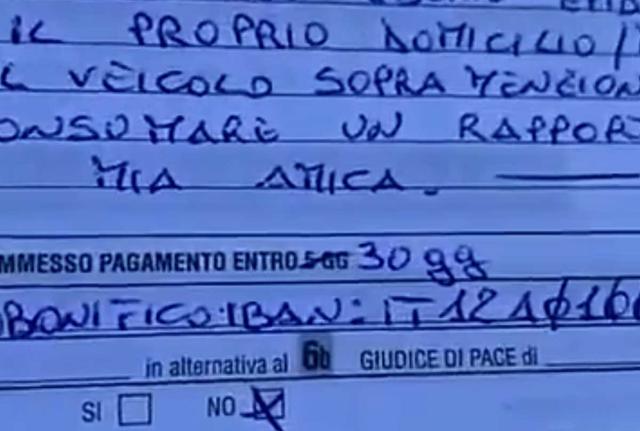 IL PROPRIO DOMICILIO/
L VEICOLO SOPRA MENZION
ONSUMARE UN RAPPOR
MIA AMICA.
MMESSO PAGAMENTO ENTRO 5 GG 30 gg
BONIFICO: IBAN: IT 12 1 Ø 1 0
in alternativa al 6b GIUDICE DI PACE di
SI NO